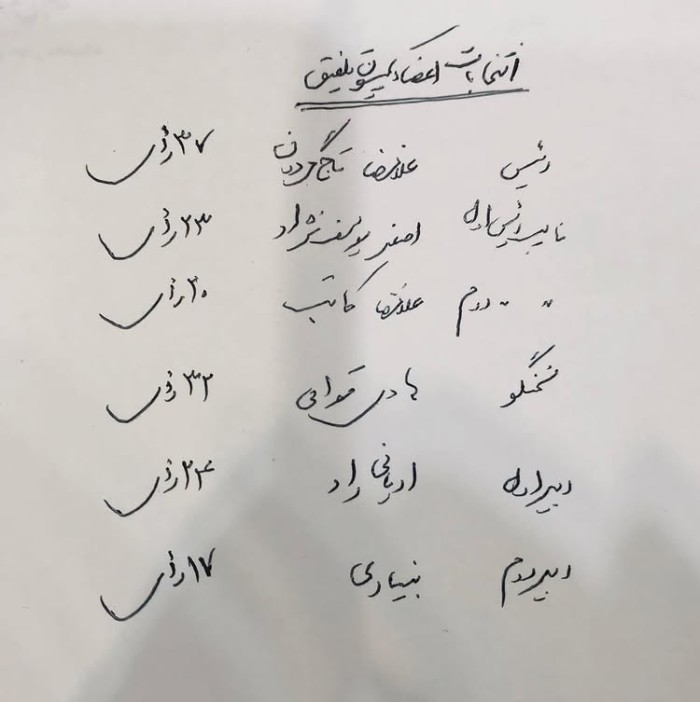 انتخابات اعضاء کمیسیون تلفیق
رئیس غلامرضا تاجگردون ۳۷ رأی
نایب رئیس اول اصغر یوسف‌نژاد ۲۳ رأی
〃 〃 دوم غلامرضا کاتب ۲۰ رأی
سخنگو هادی قوامی ۳۲ رأی
دبیر اول ادیانی راد ۲۴ رأی
دبیر دوم بنیادی ۱۷ رأی